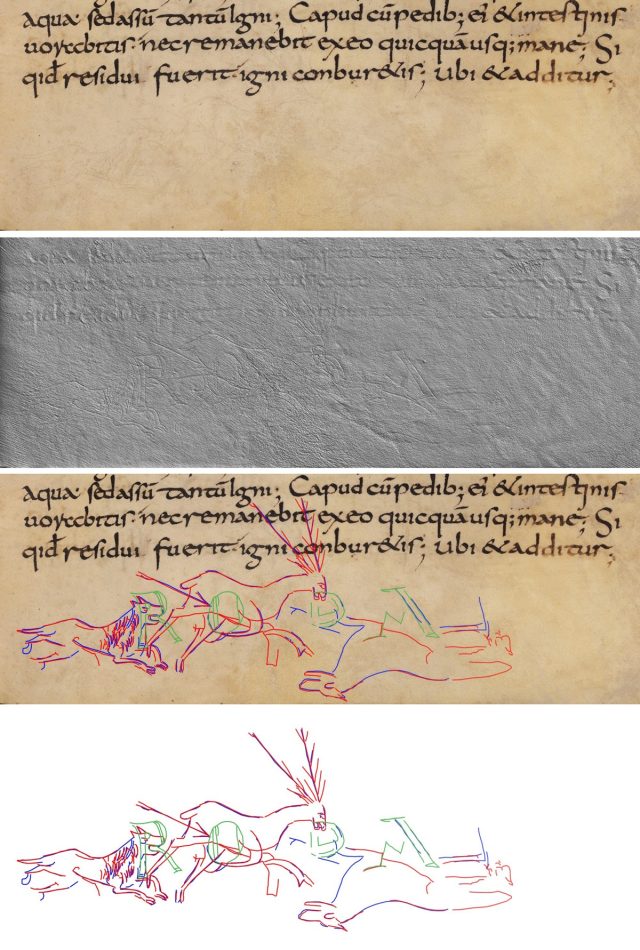 aqua sedassū tantū Igni; Capud cū pedib; ei' & intestinis
uorabitis. nec remanebit exeo quicquā usq; mane; Si
qid̄ residui fuerit. igni conbur&is; Ubi & additur;
aqua sedassū tantū Igni; Capud cū pedib; ei' & intestinis
uorabitis. nec remanebit exeo quicquā usq; mane; Si
qid̄ residui fuerit. igni conbur&is; Ubi & additur;